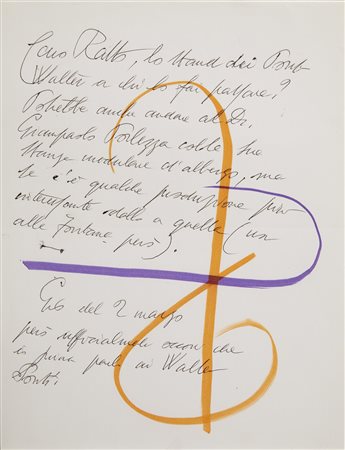 Caro Ratto, lo stand dei Ponti
Walter a chi lo fai passare?
Potrebbe anche andare al Dr.
Giampaolo con la sua
stanza modulare d'albergo, ma
se c'è qualche produzione più
interessante dalla a quella (ux
alle Fontana però).
del 2 marzo
però ufficialmente occorre che
io prima parli ai Walter
Ponti